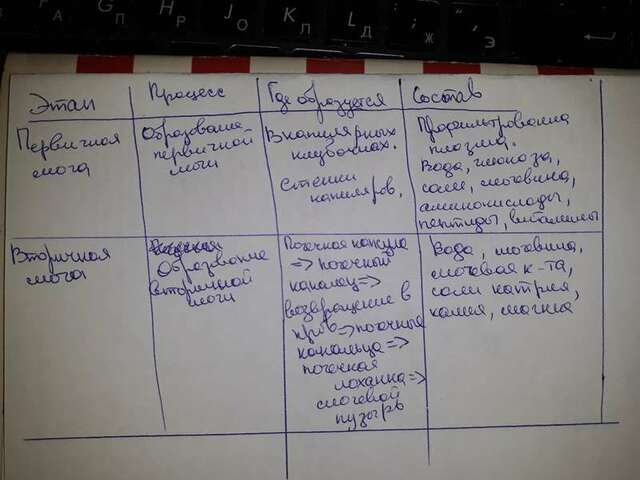 Этап Процесс Где образуется Состав
Первичная
моча
Образование
первичной
мочи
В капилярных
клубочках.
Стенки
капиляров.
Профильтрованна
плазма.
Вода, глюкоза,
соли, мочевина,
аминокислоды,
пептиды, витамины
Вторичная
моча
Образвание
вторичной
мочи
Почечная капсула
=> почечный
каналец =>
возвращение в
кровь => почечные
канальца =>
почечная
лоханка =>
мочевой
пузырь
Вода, мочевина,
мочевая к-та,
соли натрия,
калия, магния